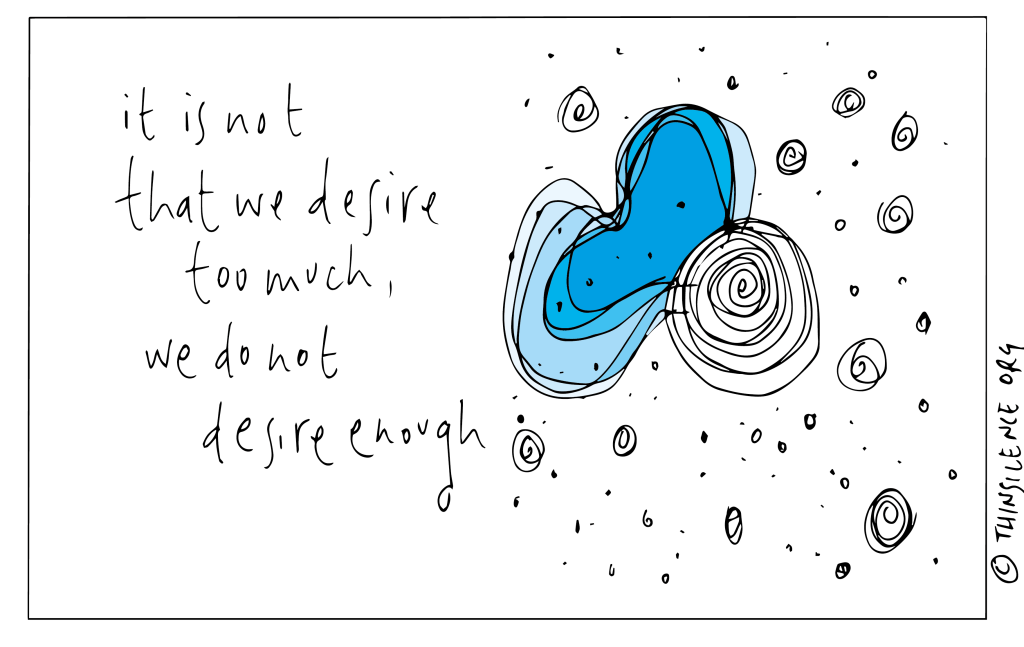 it is not
that we desire
too much,
we do not
desire enough
© THINSILENCE ORG